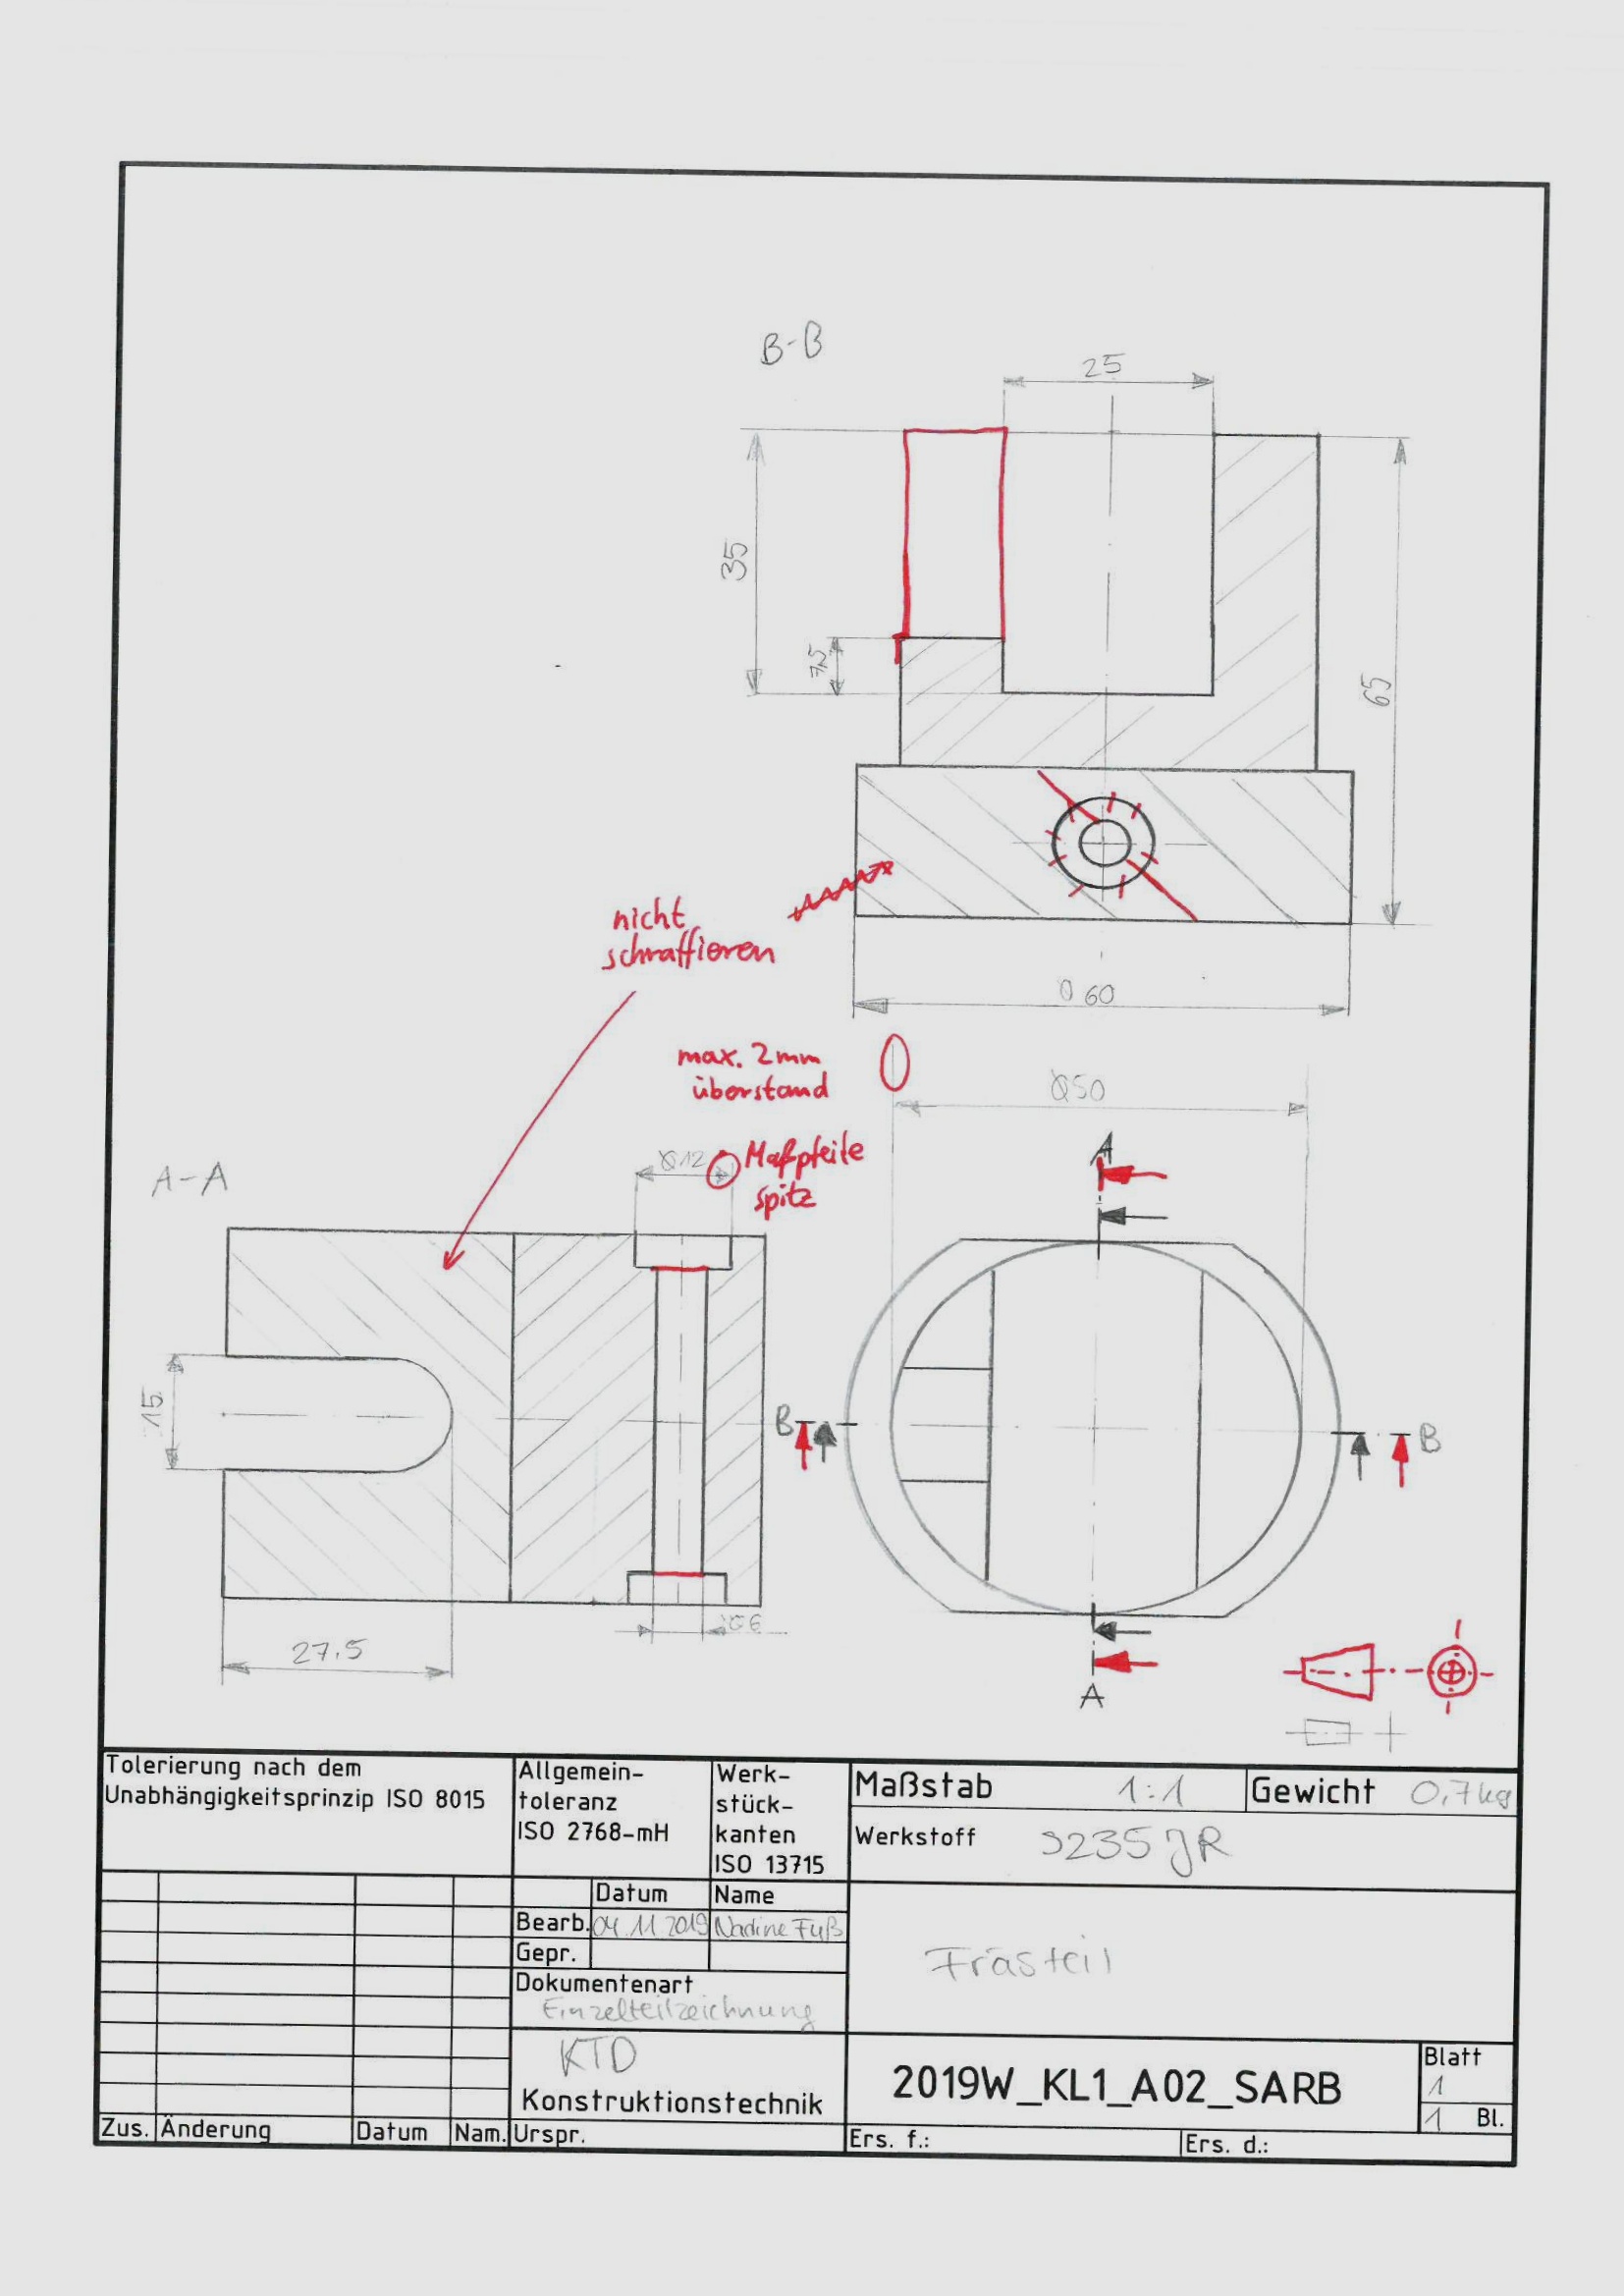 B-B
25
35
7,5
65
nicht
schraffieren
Ø 60
max. 2mm
überstand
Ø50
A
A-A
Ø12
Maßpfeile
spitz
15
B
B
Ø6
27.5
A
Tolerierung nach dem
Unabhängigkeitsprinzip ISO 8015
Allgemein-
toleranz
ISO 2768-mH
Werk-
stück-
kanten
ISO 13715
Maßstab 1:1
Gewicht 0,7kg
Werkstoff S235JR
Datum Name
Bearb. 04.11.2019 Nadine Fuß
Gepr.
Dokumentenart
Einzelteilzeichnung
Frästeil
KTD
Konstruktionstechnik
2019W_KL1_A02_SARB
Blatt
1
1 Bl.
Zus. Änderung Datum Nam. Urspr. Ers. f.: Ers. d.: